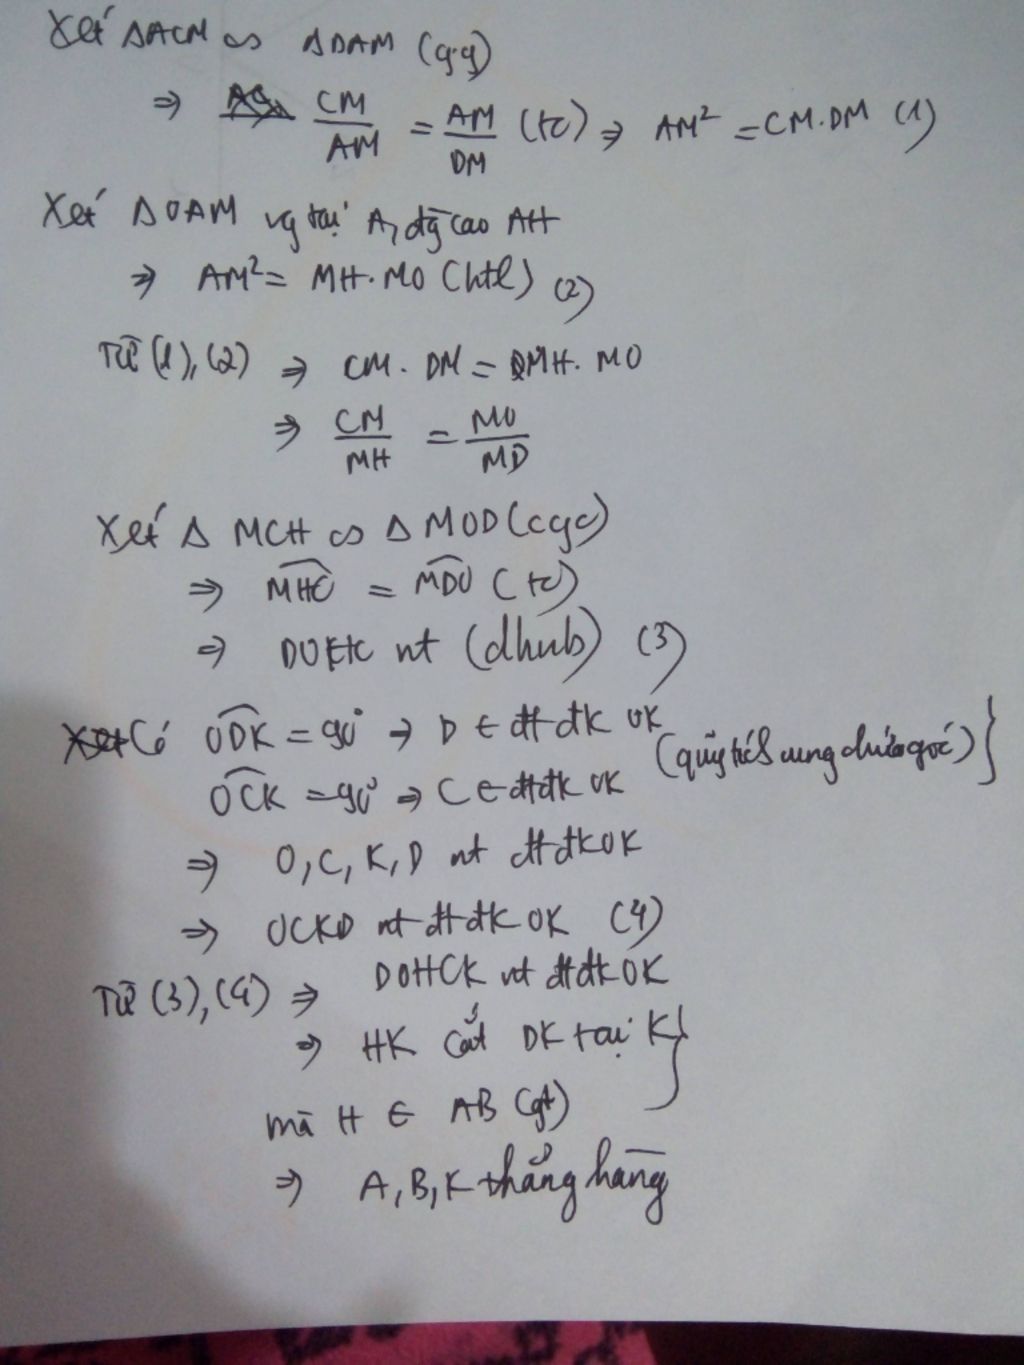 Xét ΔACM ∽ ΔDAM (g.g)
⇒ CM/AM = AM/DM (tc) ⇒ AM² = CM.DM (1)
Xét ΔOAM vg tại A, đg cao AH
⇒ AM² = MH.MO (htl) (2)
Từ (1), (2) ⇒ CM. DM = MH. MO
⇒ CM/MH = MO/MD
Xét Δ MCH ∽ Δ MOD (cgc)
⇒ MHC = MDO (tc)
⇒ DOHC nt (dhnb) (3)
Có ODK = 90° ⇒ D ∈ đt đk OK
(quỹ tích cung chứa góc)
OCK = 90° ⇒ C ∈ đt đk OK
⇒ O, C, K, D nt đt đk OK
⇒ OCKD nt đt đk OK (4)
Từ (3), (4) ⇒ DOHCK nt đt đk OK
⇒ HK cắt DK tại K
mà H ∈ AB (gt)
⇒ A, B, K thẳng hàng